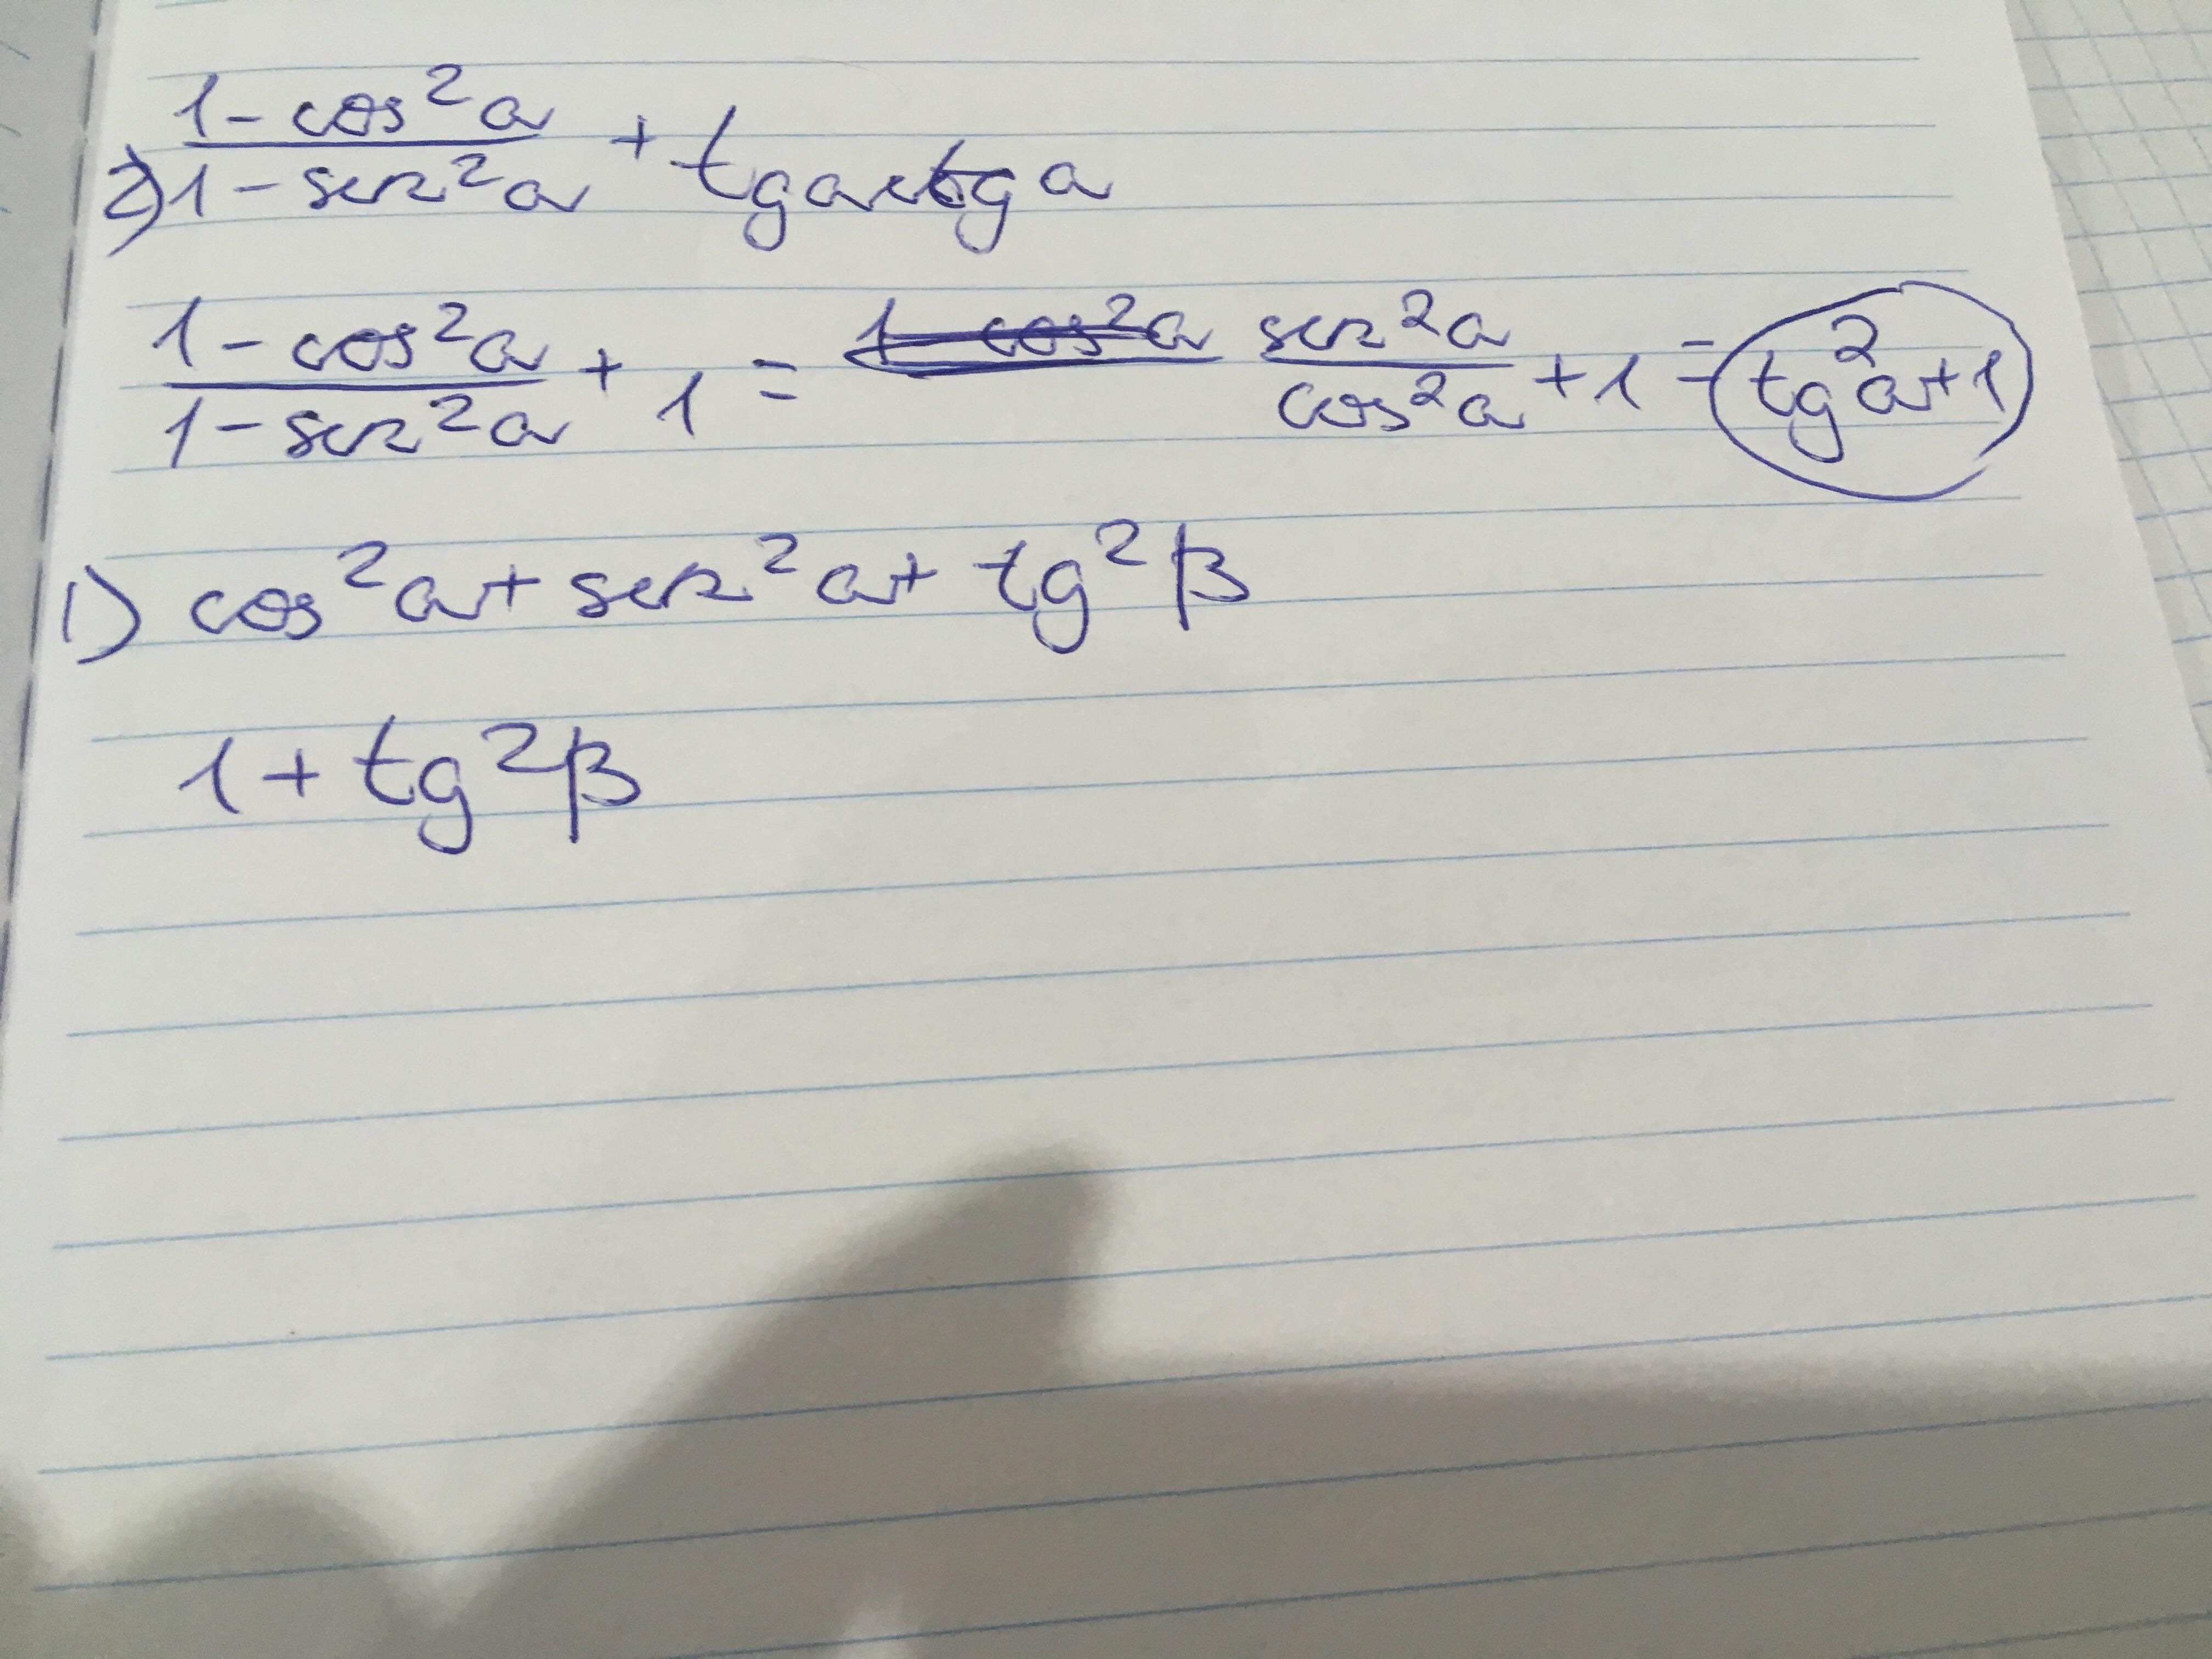 2) (1-cos²a)/(1-sin²a) + tga ctga
(1-cos²a)/(1-sin²a) + 1 = 1-cos²a sin²a/cos²a + 1 = tg²a+1
1) cos²a + sin²a + tg²β
1 + tg²β